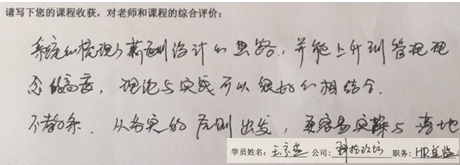 请写下您的课程收获,对老师和课程的综合评价:
系统的梳理了薪酬设计的思路,并能上升到管理理
念的高度,理论与实践可以很好的相结合。
不教条。从务实的原则出发,更容易实操与落地
学员姓名: 公司: 职务:HR总监